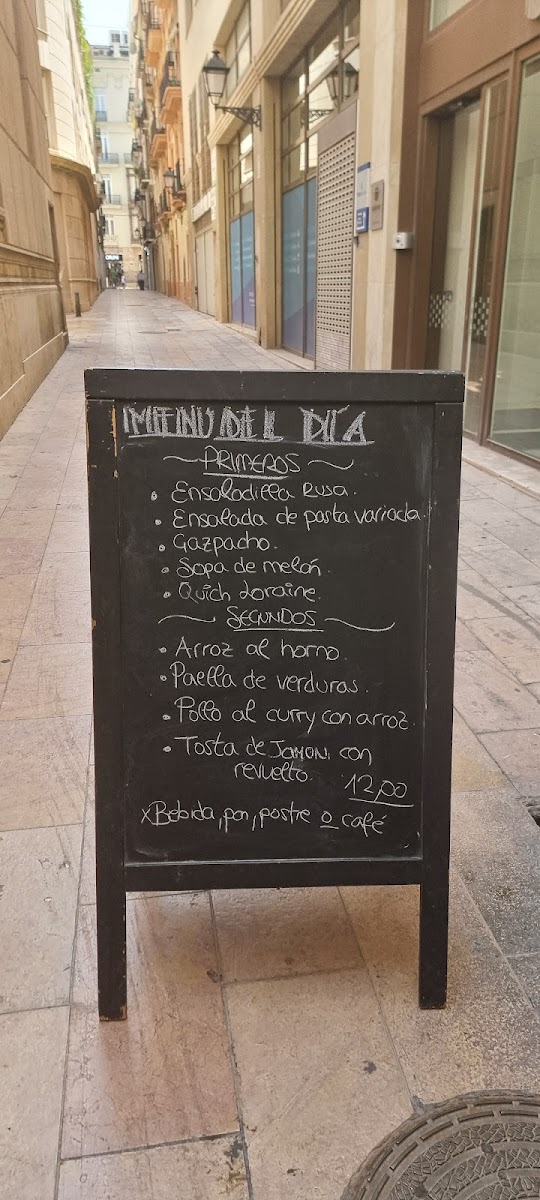 MENÚ DEL DÍA
PRIMEROS
• Ensaladilla Rusa.
• Ensalada de pasta variada.
• Gazpacho.
• Sopa de melón.
• Quich Loraine.
SEGUNDOS
• Arroz al horno.
• Paella de verduras.
• Pollo al curry con arroz.
• Tosta de JAMON, con
revuelto.
12,00
x Bebida, pan, postre o café